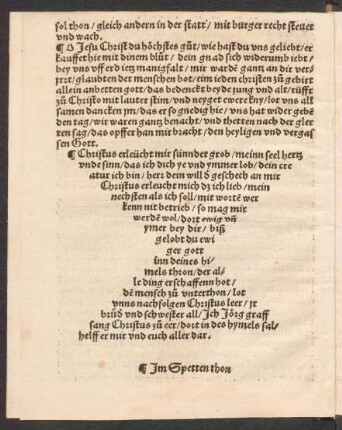 sol thon / gleich andern in der statt / mit burger recht steuer
vnd wach.
¶ O Jesu Christ du höchstes gůt / wie hast du vns geliebt / er
kauffet hie mit dinem blůt / dein gnad sich
bey vns vff erd manigfalt / mir wardē gantz an dir ver-
jrrt / glaubten der menschen bot / eim ieden christen zů gebirt
allein anbetten gott / das bedenckt beyde jung vnd alt / rüfft
zů Christo mit lauter stim / vnd neyget knÿ / lot vns all
samen dancken jm / das er so gnedig hie / vns hat wider gebē
den tag / wir waren gantz benacht / vnd thetten nach der gler
ten sag / das opffer han mir bracht / den heyligen vnd vergas
sen Gott.
¶ Christus erleücht mir sünder grob / meinn seel hertz
vnde sinn / das ich dich ye vnd ymmer lob / dein cre
atur ich bin / herr dein will d geschech an mir
Christus erleucht mich dz ich lieb / mein
nechsten als ich soll / mit wortē wer
kenn nit betrieb / so mag mir
werdē wol / dort ewig vñ
ymer bey dir / biß
gelobt du ewi
ger gott
inn deines hi-
mels thron / der al-
le ding erschaffenn hot /
dē mensch zů vnterthon / lot
vnns nachfolgen Christus leer / jr
brüd vnd schwester all / Jch Jörg graff
sang Christus zů eer / dort in des hymels sal /
helff er mir vnd euch aller dar.
¶ Jm Spetten thon